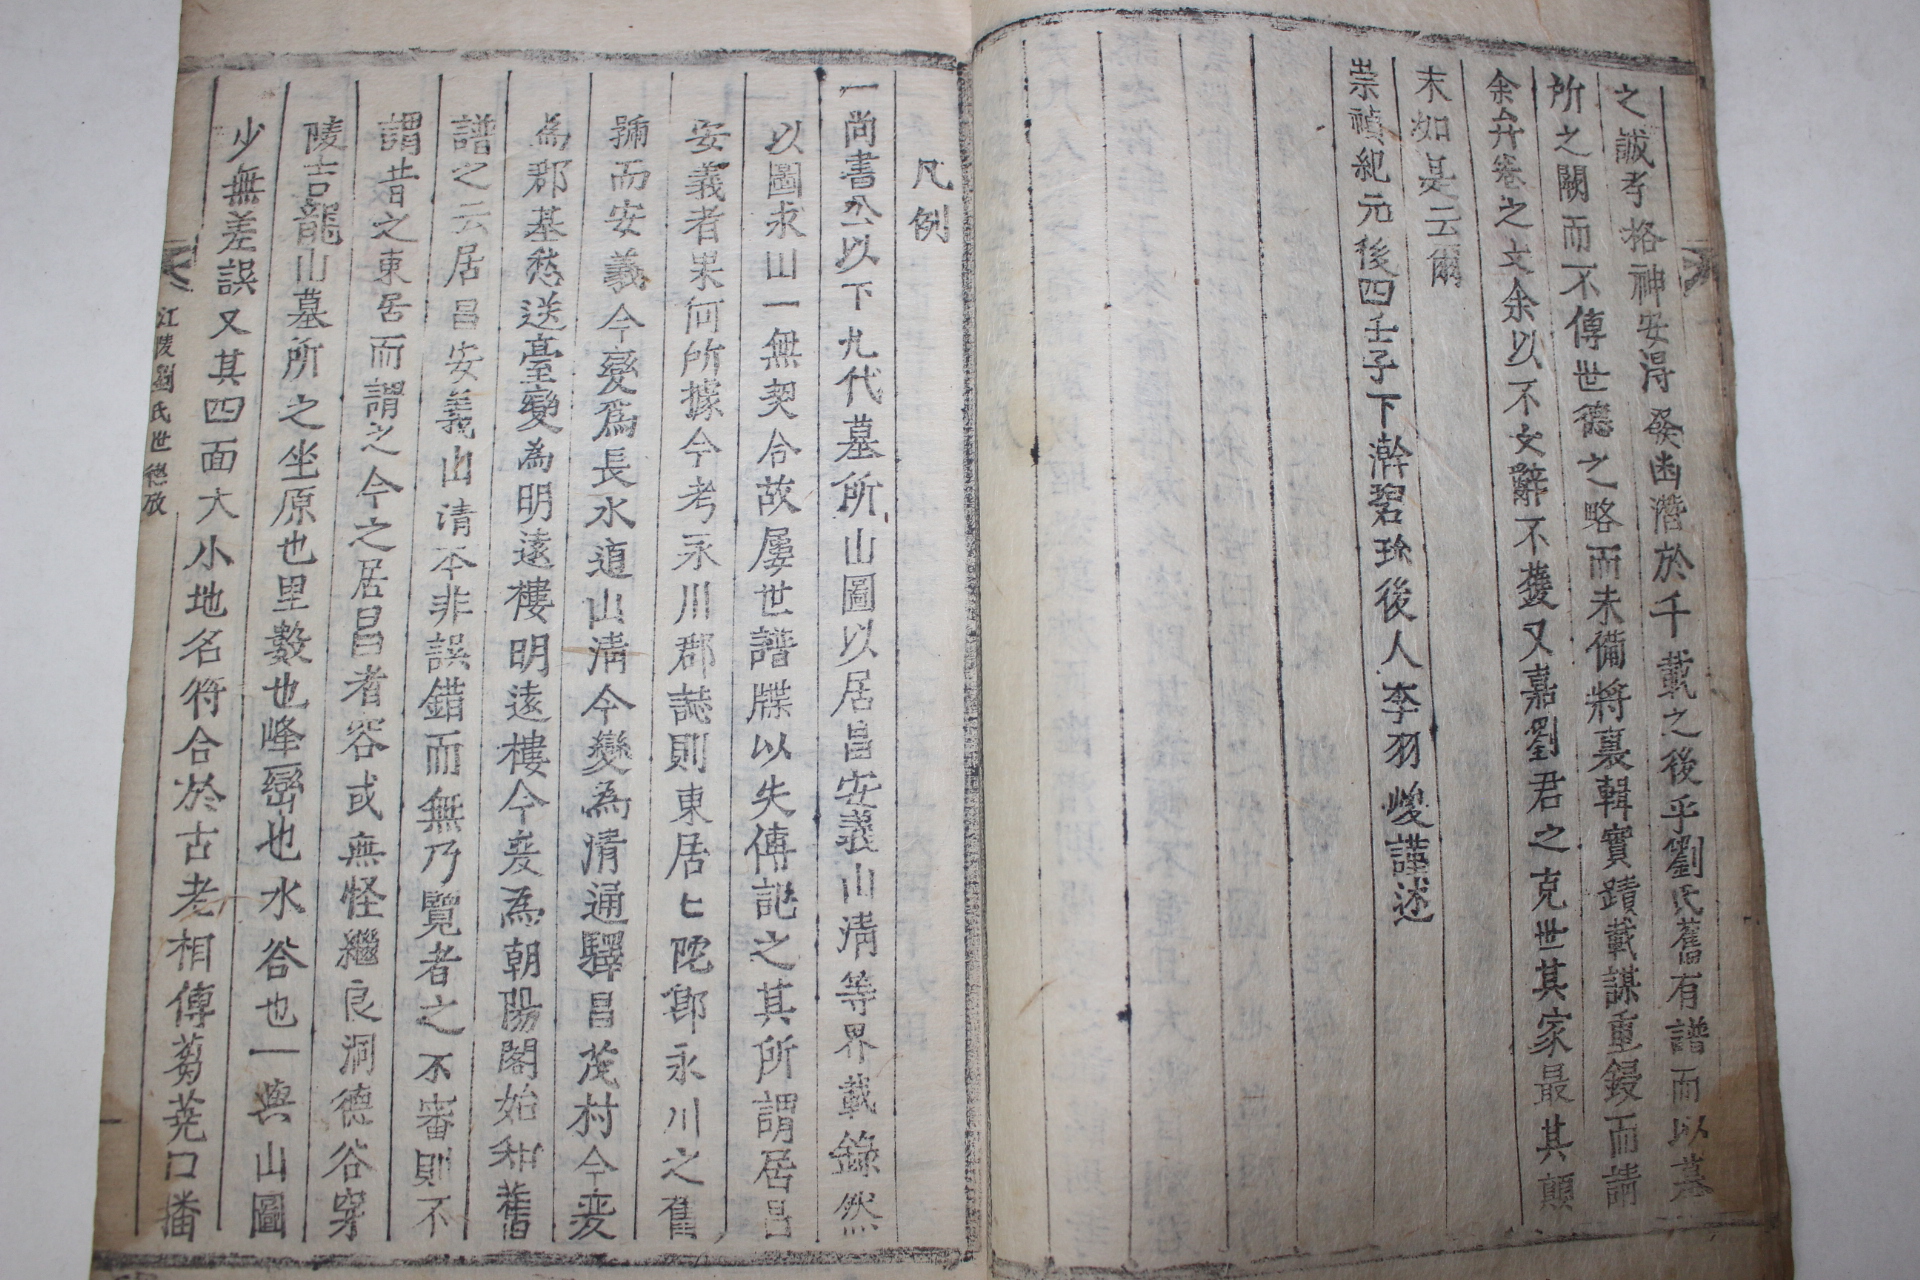 之誠孝格神安得發幽潛於千載之後乎劉氏舊有譜而以墓
所之闕而不傳世德之略而未備將裒輯實蹟載謀重鋟而請
余弁卷之文余以不文辭不獲又嘉劉君之克世其家最其顛
末如是云爾
崇禎紀元後四壬子下澣碧珍後人李羽峻謹述
凡例
一尚書公以下九代墓所山圖以居昌安義山清等界載錄然
以圖求山一無契合故屢世譜牒以失傳記之其所謂居昌
安義者果何所據今考永川郡誌則東居匕陁鄭永川之舊
號而安義今變爲長水道山清今變為清通驛昌茂村今变
為郡基愁送臺變為明遠樓明遠樓今变為朝陽閣始知舊
譜之云居昌安義山清本非誤錯而無乃覽者之不審則不
謂昔之東居而謂之今之居昌者容或無怪繼良洞德谷穿
陵吉龍山墓所之坐原也里數也峰巒也水谷也一與山圖
少無差誤又其四面大小地名符合於古老相傳蒭蕘口播
江陵劉氏世德攷